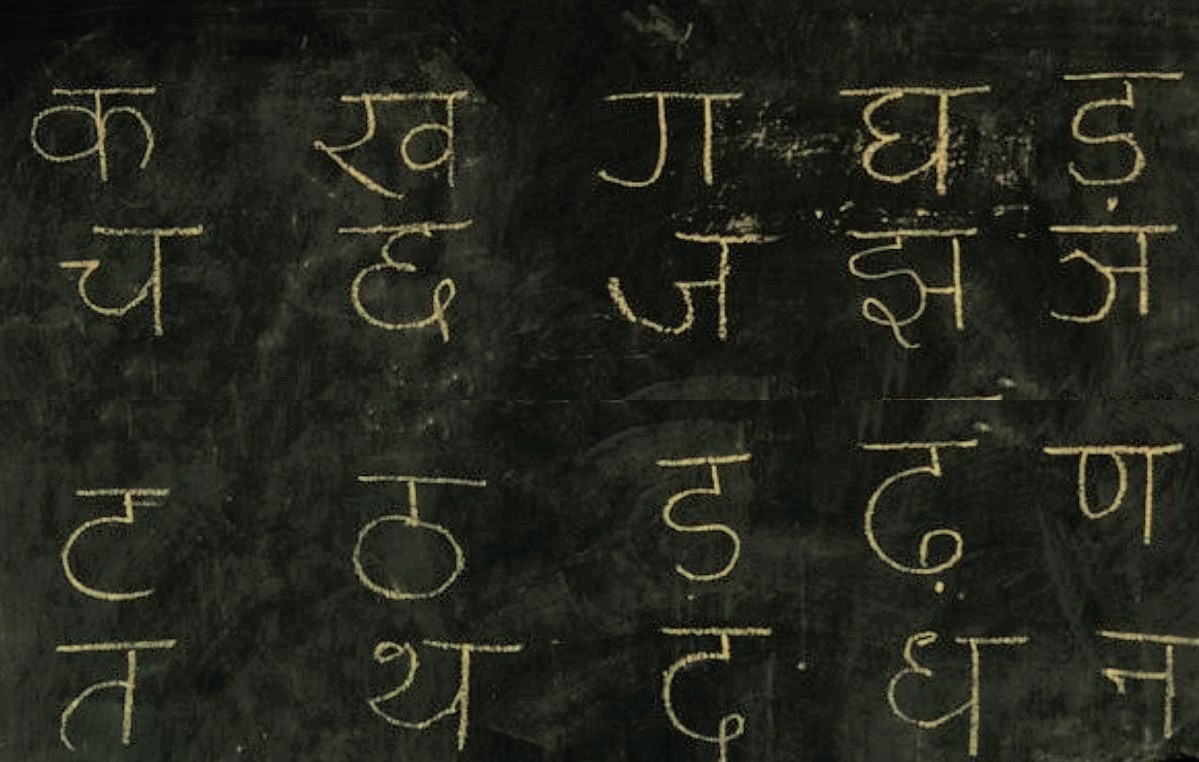 क ख ग घ ड़
च छ ज झ ञ
ट ठ ड ढ़ ण
त थ द ध न